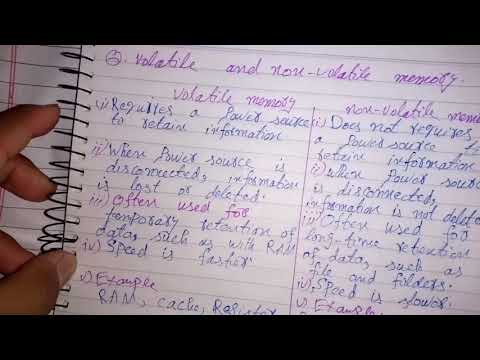 ②. Volatile and non-volatile memory.
volatile memory
i) Requires a Power source
to retain information
ii) When Power source is
disconnected, information
is lost or deleted.
iii) often used for
temporary retention of
data, such as with RAM
iv) Speed is faster.
v) Example
RAM, cache, Register
non-volatile mem
i) Does not requires
a Power source to
retain information
ii) When Power source
is disconnected,
information is not deleted
iii) Often used for
long-time retention
of data, such as
file and folders.
iv) Speed is slower.
v) Example